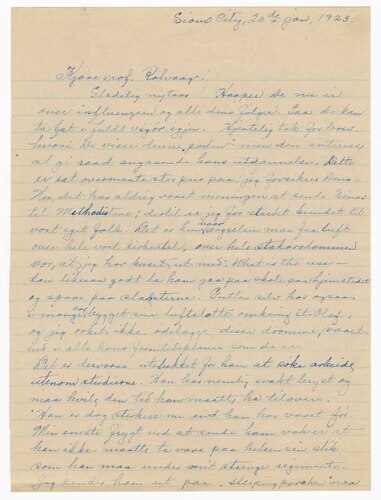 Sioux City, 20de jan, 1923.
Kjære prof. Rolvaag!
Gladelig nytaar! Haaper De nu er
over influenzaen og alle dens følger. Saa De kan
ta fat i fuldt vigør igjen. Hjertelig tak for brevet,
hvori De viser denne, poden min den interesse
at gi raad angaaende hans utdannelse. Dette
er sat overmaate stor pris paa jeg forsikrer Dem.
Her det har aldrig været meningen at sende Einar
til Methodisterne; dertil er jeg for sterkt bundet til
vort eget folk. Det er kun naar maa faa luft
over hele vort kirkestel, over hele stakarsdommen
vor, at jeg har huset ut med: What is the use –
kan likesaa godt la ham gaa paa skole paa hjemstedet
og spare paa slanterne. Gutten selv har ogsaa
i mange aar bygget sine luftslotte omkring St. Olaf,
og jeg orket ikke ødelægge disse drømme,
end i alle hans fremtidsplaner som de er.
Det er desværre utelukket for ham at søke arbeide
utenom studierne. Han har nemlig svakt bryst og
maa hvile den tid han maatte ha tilovers.
Han er dog sterkere nu end han har været før.
Min eneste frygt ved at sende ham vækk er at
han ikke maatte ta vare paa helsen sin slik
som han maa under mit strenge regimente.
Jeg sendes ham ut paa "sleeping porchen" naar